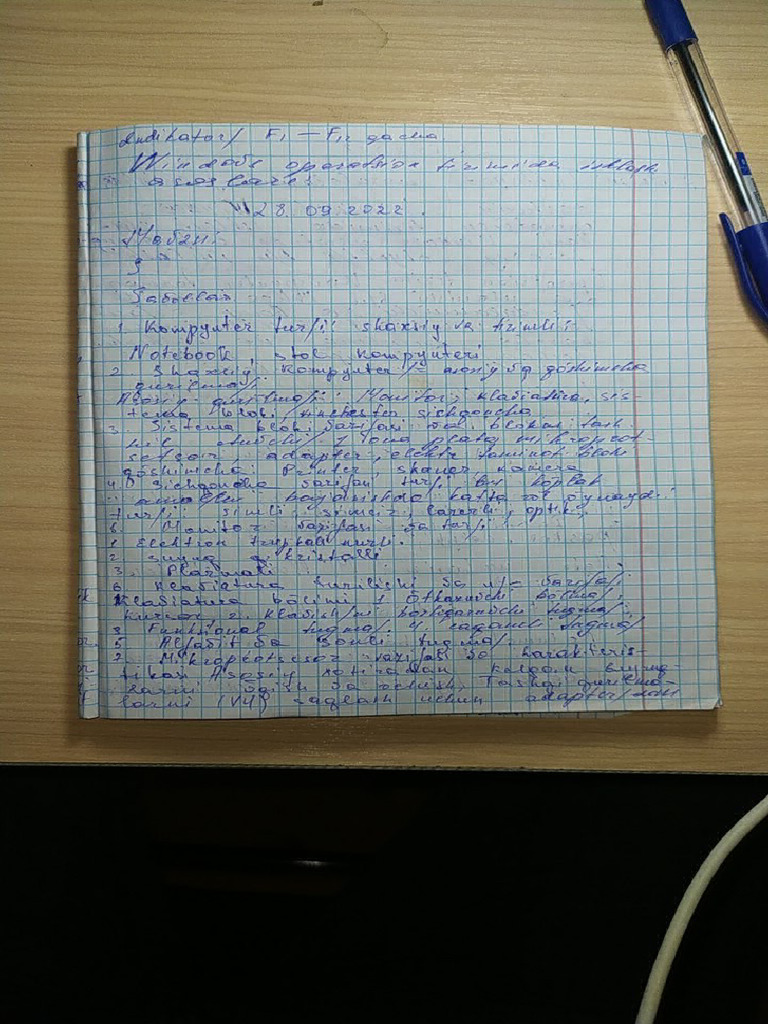 Indikator/ F1 — F12 gacha
Windows operatsion tizimida ishlash
asoslari:
28.09.2022.
Mavzu:
Savollar
1. Kompyuter turi: shaxsiy va tizimli:
Notebook, stol kompyuteri
2. Shaxsiy kompyuter asosiy va qoshimcha
qurilma/.
Asosiy qurilma/: Monitor, klaviatura, sis-
tema blok, sichqoncha
3. Sistema bloki vazifasi va blokni tash-
kil etuvchi/ 1 ona plata, mikroprot-
sessor, adapter, elektr taminot bloki
qoshimcha: Printer, skaner, kamera
4. Sichqoncha vazifasi turi bu koplab
amalni bajarishda katta rol oynaydi.
turi: simli, simsiz, lazerli, optik,
Monitor vazifasi va turi
1 Elektron trubkali nurli.
2 suyuq kristalli
3. Plazmali
6 klaviatura tuzilishi va vazifasi
klaviatura bolimi 1
2. klavish/ni boshqaruvchi tugma/
3 Funksional tugma/ 4.
5 Alfavit va sonli tugma/.
Mikroprotsessor vazifasi va harakteris-
tikasi Asosiy xotiradan kelgan buyruq-
larni oqish va ochish. Tashqi qurilma-
larni (VU) saqlash uchun adapter/